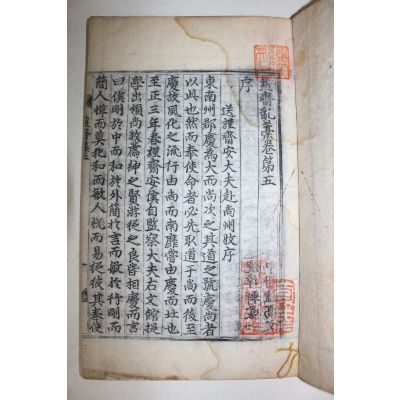 齋亂藁卷第五
序
送謹齋安大夫赴尚州牧序
東南州郡慶為大而尚次之其道之號慶尚者
以此也然而奉使命者必先取道于尚而後至
慶故風化之流行由尚而南靡嘗由慶而北也
至正三年春謹齋安侯自監察大夫右文館提
學出領尚牧薦紳之賢蔣侯之良皆相慶而言
曰侯剛於中而和於外簡於言而敏於行剛而
簡人憚而莫犯和而敏人悅而易從彼其奉使